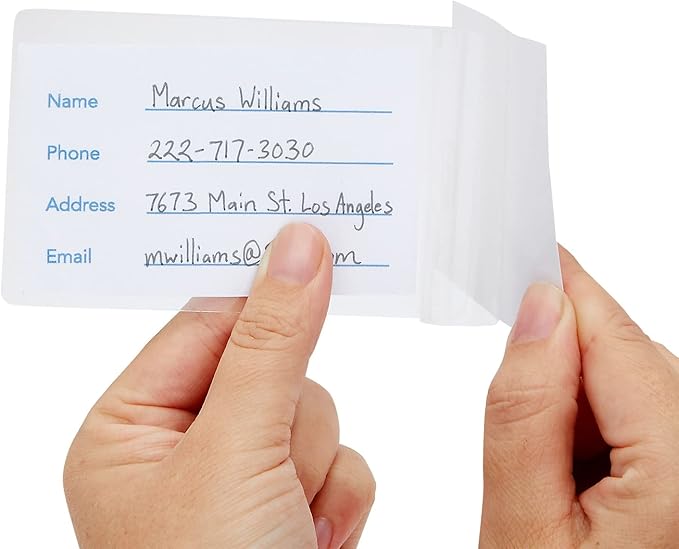 Name Marcus Williams
Phone 222-717-3030
Address 7673 Main St. Los Angeles
Email